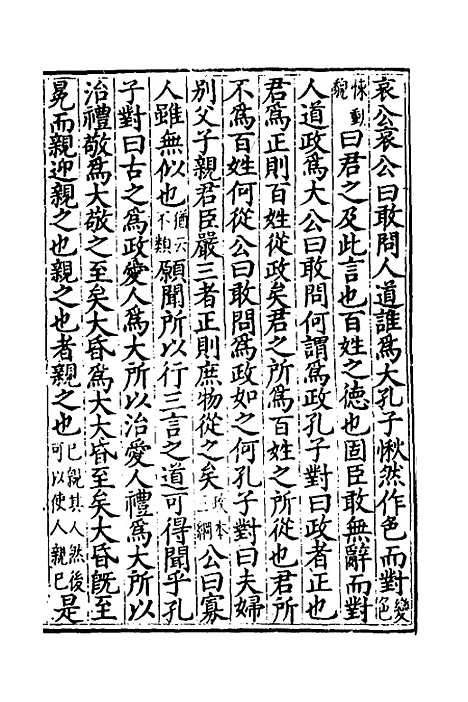 哀公哀公曰敢問人道誰爲大孔子愀然作色而對變色
悚動貌曰君之及此言也百姓之德也固臣敢無辭而對
人道政爲大公曰敢問何謂爲政孔子對曰政者正也
君爲正則百姓從政矣君之所爲百姓之所從也君所
不爲百姓何從公曰敢問爲政如之何孔子對曰夫婦
別父子親君臣嚴三者正則庶物從之矣政本三綱公曰寡
人雖無似也猶云不類願聞所以行三言之道可得聞乎孔
子對曰古之爲政愛人爲大所以治愛人禮爲大所以
治禮敬爲大敬之至矣大昏爲大大昏至矣大昏既至
冕而親迎親之也親之也者親之也已親其人然後可以使人親已是